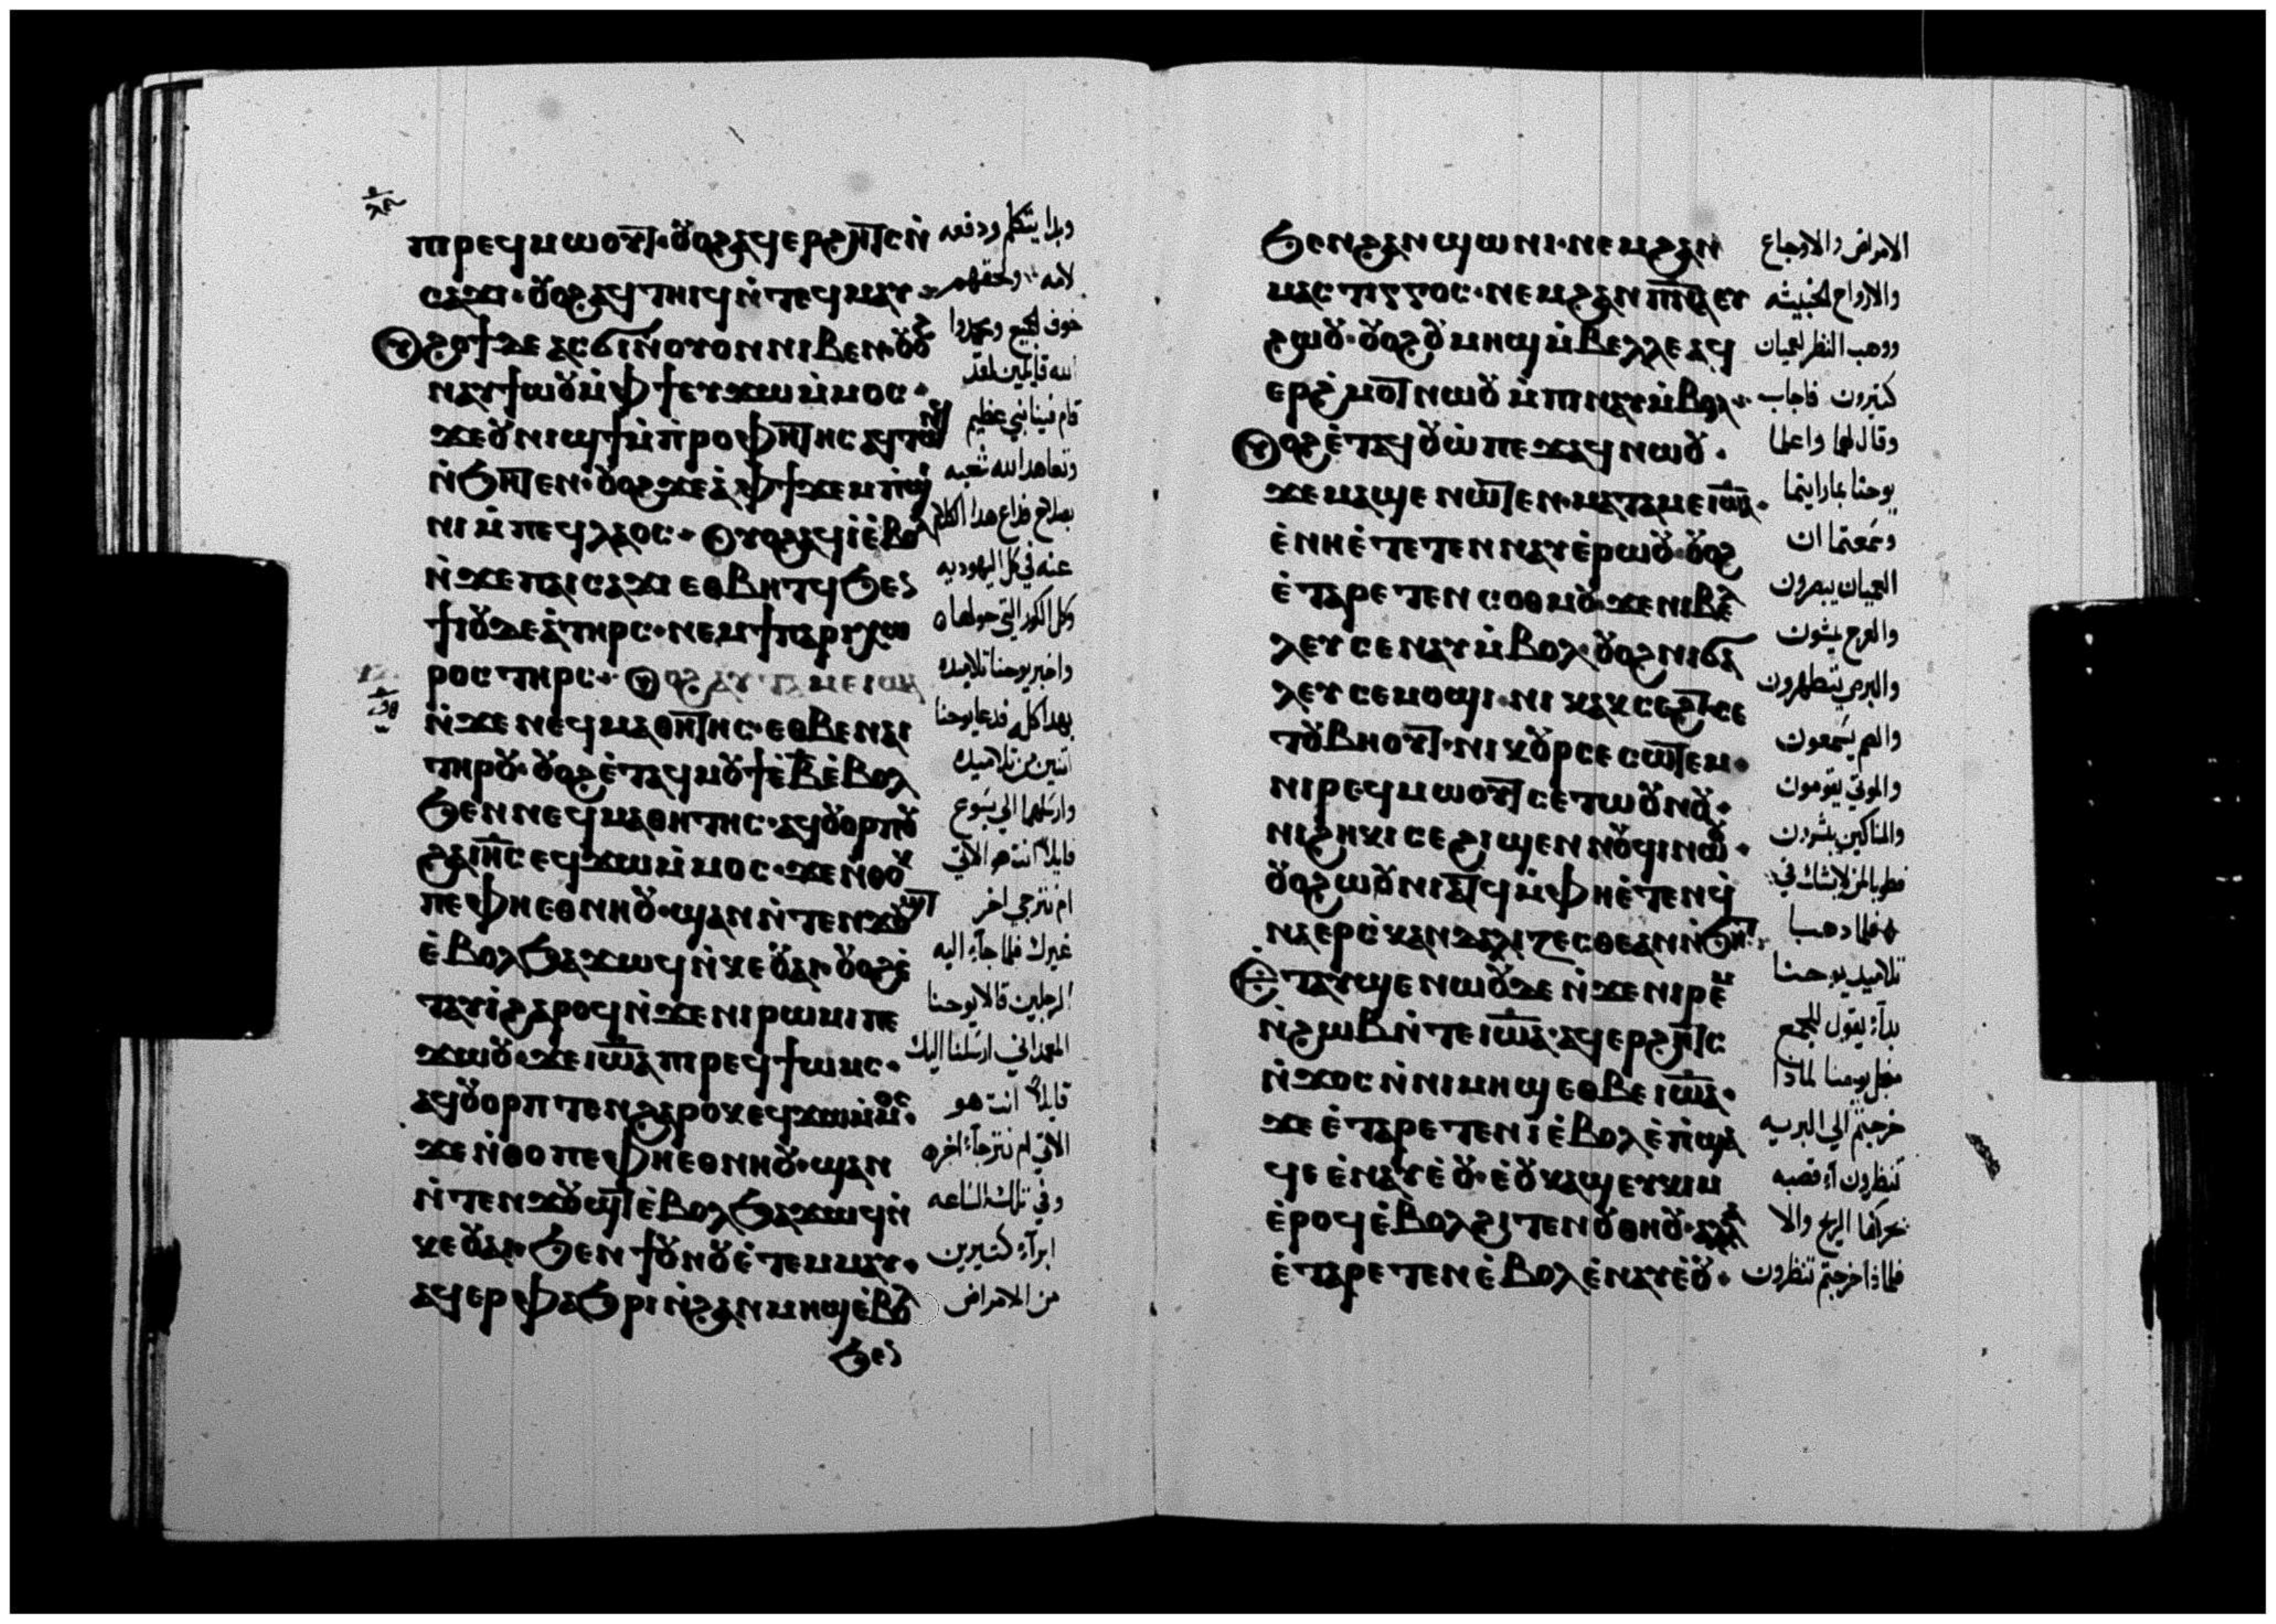 ⲡⲓⲣⲉϥⲙⲱⲟⲩⲧ· ⲟⲩⲟϩ ⲁϥⲉⲣϩⲏⲧⲥ ⲛ̀
ⲥⲁϫⲓ· ⲟⲩⲟϩ ⲁϥⲧⲏⲓϥ ⲛ̀ⲧⲉϥⲙⲁⲩ
ϩⲟϯ ⲇⲉ ⲁⲥϭⲓ ⲛ̀ⲟⲩⲟⲛ ⲛⲓⲃⲉⲛ· ⲟⲩⲟϩ
ⲛⲁⲩϯⲱⲟⲩ ⲙ̀ⲫϯ ⲉⲩϫⲱ ⲙ̀ⲙⲟⲥ·
ϫⲉ ⲟⲩⲛⲓϣϯ ⲙ̀ⲡ̀ⲣⲟⲫⲏⲧⲏⲥ ⲁϥⲧⲱⲛϥ
ⲛ̀ϧⲏⲧⲉⲛ· ⲟⲩⲟϩ ϫⲉ ⲁ̀ ⲫϯ ϫⲉⲙⲡ̀ϣⲓ
ⲛⲓ ⲙ̀ⲡⲉϥⲗⲁⲟⲥ· ⲟⲩⲟϩ ⲁϥⲓ̀ ⲉ̀ⲃⲟⲗ
ⲛ̀ϫⲉ ⲡⲁⲓⲥⲁϫⲓ ⲉⲑⲃⲏⲧϥ ϧⲉⲛ
ϯⲓⲟⲩⲇⲉⲁ̀ ⲧⲏⲣⲥ· ⲛⲉⲙ ϯⲡⲉⲣⲓⲭⲱ
ⲣⲟⲥ ⲧⲏⲣⲥ· ⲟⲩⲟϩ ⲁⲩⲧⲁⲙⲉ ⲓⲱⲁ
ⲛ̀ϫⲉ ⲛⲉϥⲙⲁⲑⲏⲧⲏⲥ· ⲉⲑⲃⲉ ⲛⲁⲓ
ⲧⲏⲣⲟⲩ· ⲟⲩⲟϩ ⲉ̀ⲧⲁϥⲙⲟⲩϯ ⲉ̀ⲃ̅ ⲉ̀ⲃⲟⲗ
ϧⲉⲛ ⲛⲉϥⲙⲁⲑⲏⲧⲏⲥ· ⲁϥⲟⲩⲟⲣⲡⲟⲩ
ϩⲁ ⲓⲏ̅ⲥ̅ ⲉϥϫⲱ ⲙ̀ⲙⲟⲥ· ϫⲉ ⲛ̀ⲑⲟⲕ
ⲡⲉ ⲫⲏⲉⲑⲛⲏⲟⲩ· ϣⲁⲛ ⲛ̀ⲧⲉⲛϫⲟⲩϣⲧ
ⲉ̀ⲃⲟⲗ ϧⲁϫⲱϥ ⲛ̀ⲕⲉⲟⲩⲁⲓ· ⲟⲩⲟϩ ⲉ̀
ⲧⲁⲩⲓ̀ ϩⲁⲣⲟϥ ⲛ̀ϫⲉ ⲛⲓⲣⲱⲙⲓ ⲡⲉ
ϫⲱⲟⲩ· ϫⲉ ⲓⲱⲁ ⲡⲓⲣⲉϥϯⲱⲙⲥ·
ⲁϥⲟⲩⲟⲣⲡⲧⲉⲛ ϩⲁⲣⲟⲕ ⲉϥϫⲱ ⲙ̀ⲙⲟⲥ·
ϫⲉ ⲛ̀ⲑⲟ ⲡⲉ ⲫⲏⲉⲑⲛⲏⲟⲩ· ϣⲁⲛ
ⲛ̀ⲧⲉⲛϫⲟⲩϣⲧ ⲉ̀ⲃⲟⲗ ϧⲁϫⲱϥ ⲛ̀
ⲕⲉⲟⲩⲁⲓ· ϧⲉⲛ ϯⲟⲩⲛⲟⲩ ⲉ̀ⲧⲉⲙⲙⲁⲩ·
ⲁϥⲉⲣⲫⲁϧⲣⲓ ⲛ̀ϩⲁⲛⲙⲏϣ ⲉ̀ⲃⲟⲗ
ϧⲉⲛ
وبدا يتكلم ودفعه
لامه ولحقهم
خوف الجميع ومجدوا
الله قايلين لقد
قام فينا نبي عظيم
وتعاهد الله شعبه
بصلاح فذاع هذا الكلام
عنه في كل اليهوديه
وكل الكور التي حولها
واخبر يوحنا تلاميذه
بهذا كله فدعا يوحنا
اثنين من تلاميذه
وارسلهما الي يسوع
قايلا انت هو الاتي
ام نترجي اخر
غيرك فلما جآء اليه
الرجلين قالا يوحنا
المعمداني ارسلنا اليك
قايلا انت هو
الاتي ام نترجآء اخر
وفي تلك الساعه
ابرآء كثيرين
من الامراض
ϧⲉⲛ ϩⲁⲛϣⲱⲛⲓ· ⲛⲉⲙ ϩⲁⲛ
ⲙⲁⲥⲧⲓⲅⲅⲟⲥ· ⲛⲉⲙ ϩⲁⲛⲡ̅ⲛ̅ⲁ̅ ⲉⲩ
ϩⲱⲟⲩ· ⲟⲩⲟϩ ⲟⲩⲙⲏϣ ⲙ̀ⲃⲉⲗⲗⲉ ⲁϥ
ⲉⲣϩ̀ⲙⲟⲧ ⲛⲱⲟⲩ ⲙ̀ⲡⲓⲛⲁⲩ ⲙ̀ⲃⲟⲗ·
ⲟⲩⲟϩ ⲉ̀ⲧⲁϥⲟⲩⲱ̀ ⲡⲉϫⲁϥ ⲛⲱⲟⲩ·
ϫⲉ ⲙⲁϣⲉ ⲛⲱⲧⲉⲛ· ⲙⲁⲧⲁⲙⲉ ⲓⲱⲁ·
ⲉ̀ⲛⲏⲉ̀ⲧⲉⲧⲉⲛⲛⲁⲩ ⲉ̀ⲣⲱⲟⲩ· ⲟⲩⲟϩ
ⲉ̀ⲧⲁⲣⲉⲧⲉⲛⲥⲟⲑⲙⲟⲩ· ϫⲉ ⲛⲓⲃⲉⲗ
ⲗⲉⲩ ⲥⲉⲛⲁⲩ ⲙ̀ⲃⲟⲗ· ⲟⲩⲟϩ ⲛⲓϭⲁ
ⲗⲉⲩ ⲥⲉⲙⲟϣⲓ· ⲛⲓⲕⲁⲕⲥⲉϩⲧ ⲥⲉ
ⲧⲟⲩⲃⲏⲟⲩⲧ· ⲛⲓⲕⲟⲩⲣ ⲥⲉⲥⲱⲧⲉⲙ·
ⲛⲓⲣⲉϥⲙⲱⲟⲩⲧ ⲥⲉⲧⲱⲟⲩⲛⲟⲩ·
ⲛⲓϩⲏⲕⲓ ⲥⲉϩⲓϣⲉⲛⲛⲟⲩϥⲓ ⲛⲱⲟⲩ·
ⲟⲩⲟϩ ⲱⲟⲩⲛⲓⲁⲧϥ ⲙ̀ⲫⲏⲉ̀ⲧⲉⲛϥ̀
ⲛⲁⲉⲣⲥ̀ⲕⲁⲛⲇⲁⲗⲓⲍⲉⲥⲑⲉ ⲁⲛ ⲛ̀ϧⲏⲧ
ⲉ̀ⲧⲁⲩϣⲉ ⲛⲱⲟⲩ ⲇⲉ ⲛ̀ϫⲉ ⲛⲓⲣⲉⲙ
ⲛ̀ϩⲱⲃ ⲛ̀ⲧⲉ ⲓⲱⲁ· ⲁϥⲉⲣϩⲏⲧⲥ
ⲛ̀ϫⲟⲥ ⲛ̀ⲛⲓⲙⲏϣ ⲉⲑⲃⲉ ⲓⲱⲁ·
ϫⲉ ⲉ̀ⲧⲁⲣⲉⲧⲉⲛⲓ̀ ⲉ̀ⲃⲟⲗ ⲉ̀ⲡ̀ϣⲁ
ϥⲉ ⲉ̀ⲛⲁⲩ ⲉ̀ⲟⲩ· ⲉ̀ⲟⲩⲕⲁϣ ⲉⲩⲕⲓⲙ
ⲉ̀ⲣⲟϥ ⲉ̀ⲃⲟⲗϩⲓⲧⲉⲛ ⲟⲩⲑⲏⲟⲩ· ⲁⲗⲗⲁ
ⲉ̀ⲧⲁⲣⲉⲧⲉⲛ ⲉ̀ⲃⲟⲗ ⲉ̀ⲛⲁⲩ ⲉ̀ⲟⲩ·
الامراض والاوجاع
والارواح الخبيثه
ووهب النظر لعميان
كثيرون فاجاب
وقال لهما واعلما
يوحنا بما رايتما
وسمعتما ان
العميان يبصرون
والعرج يمشون
والبرص يتطهرون
والصم يسمعون
والموتي يقومون
والمساكين يبشرون
فطوبا لمن لا يشك في
فلما ذهبا
تلاميذ يوحنا
بدآء يقول للجمع
من اجل يوحنا لماذا
خرجتم الي البريه
تنظرون آء قصبه
تحركها الريح والا
فلماذا خرجتم تنظرون